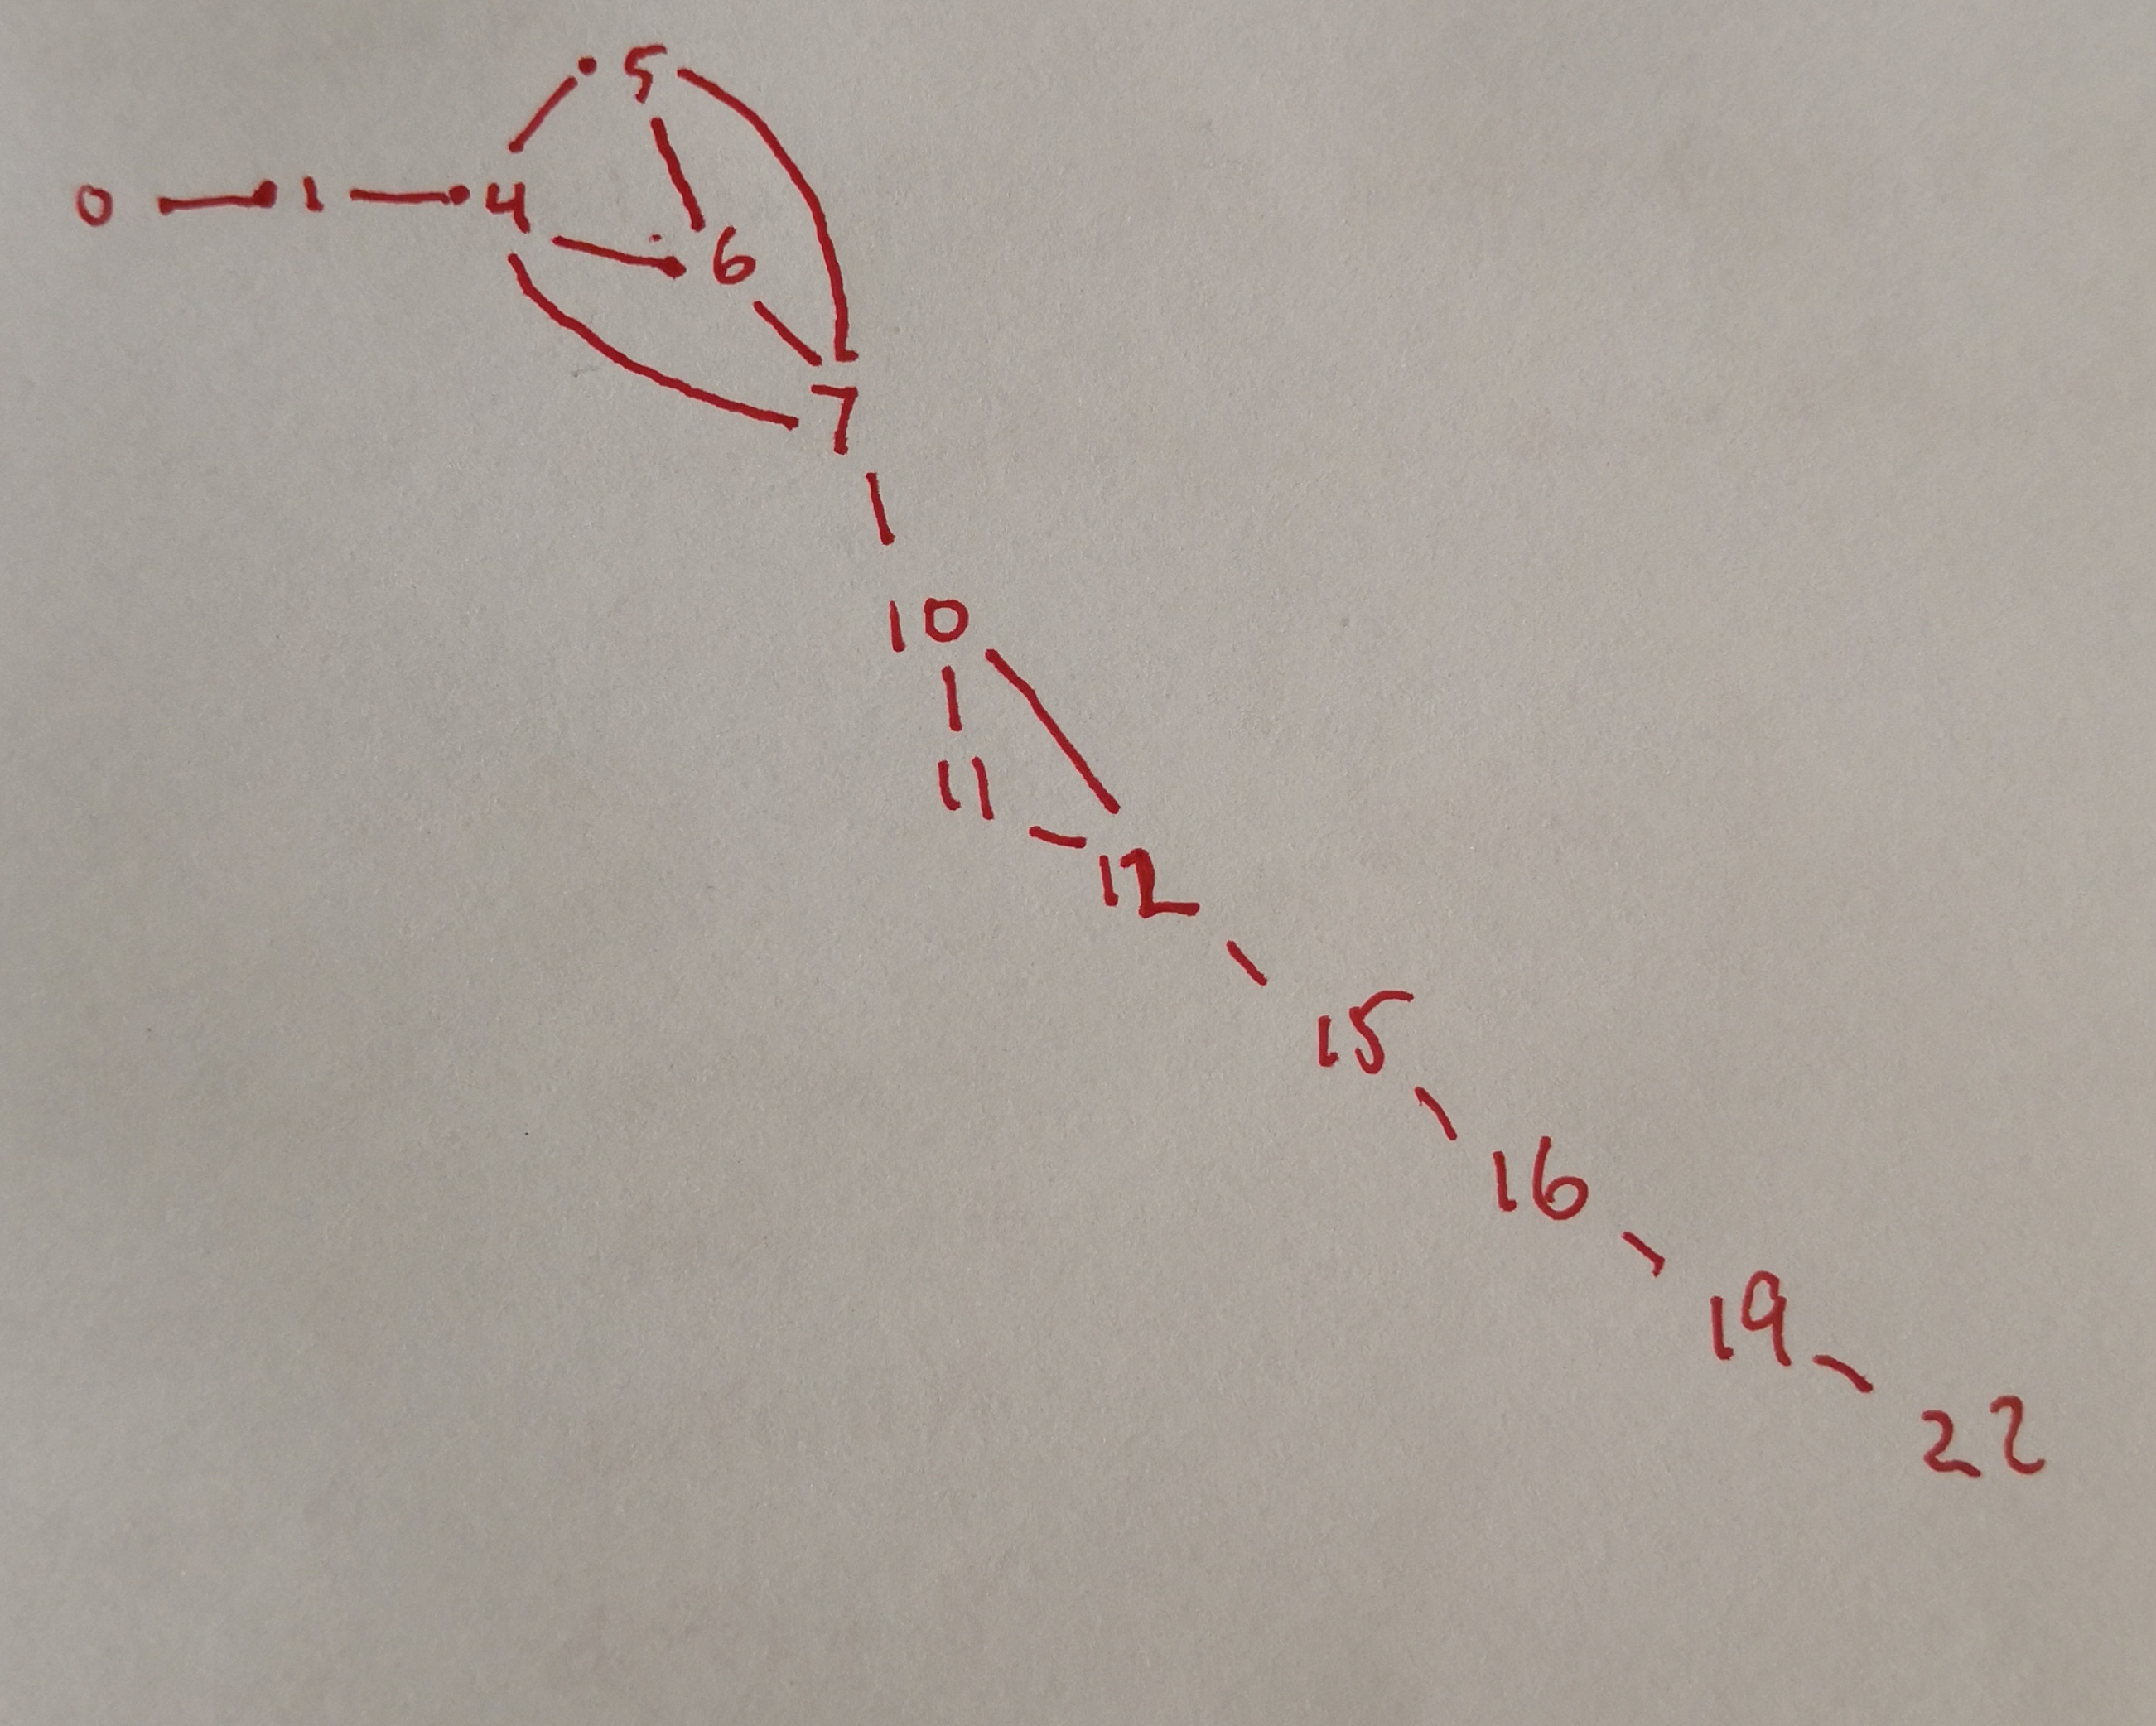 5
0 1 4
6
7
10
11
12
15
16
19
22